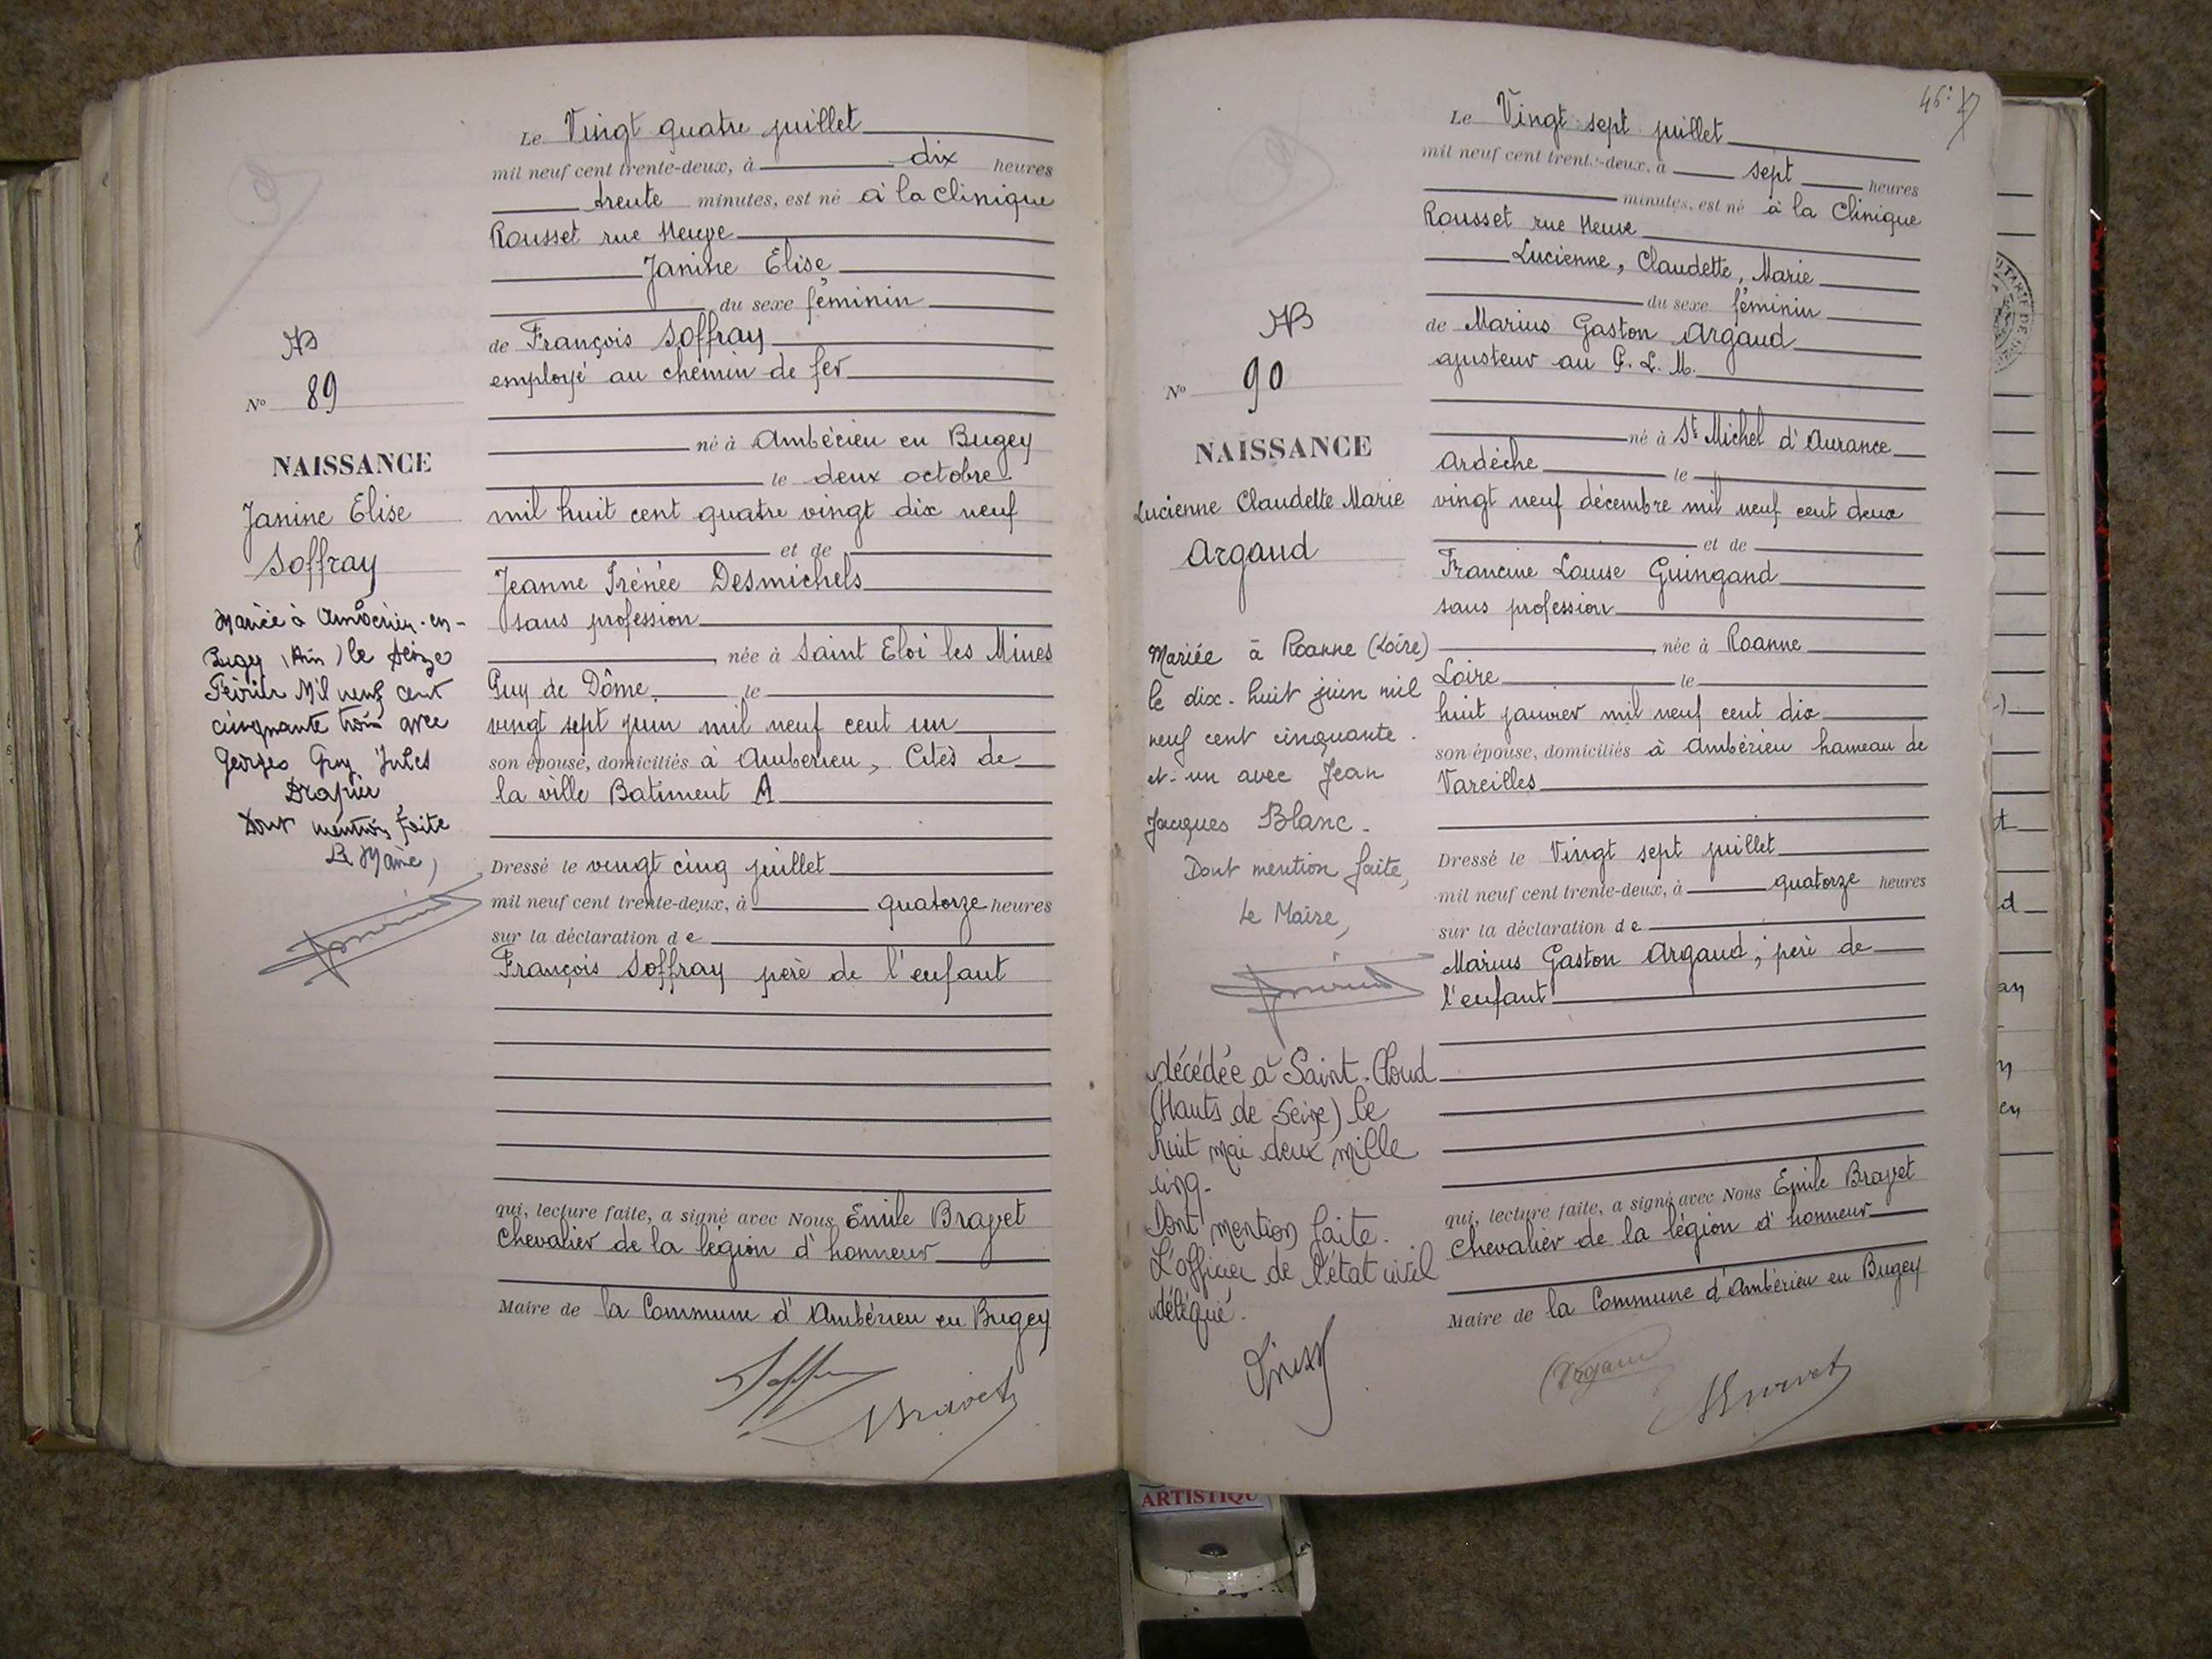 Le Vingt quatre juillet
mil neuf cent trente-deux, à dix heures
trente minutes, est né à la Clinique
Rousset rue Neuve
Janine Elise
du sexe féminin
de François Soffray
employé au chemin de fer
né à Ambérieu en Bugey
le deux octobre
mil huit cent quatre vingt dix neuf
et de
Jeanne Irénée Desmichels
sans profession
née à Saint Eloi les Mines
Puy de Dôme le
vingt sept juin mil neuf cent un
son épouse, domiciliés à Ambérieu, Cités de
la ville Batiment A
Dressé le vingt cinq juillet
mil neuf cent trente-deux, à quatorze heures
sur la déclaration de
François Soffray père de l'enfant
qui, lecture faite, a signé avec Nous Emile Bravet
Chevalier de la légion d'honneur
Maire de la Commune d'Ambérieu en Bugey
Bravet
N° 89
NAISSANCE
Janine Elise
Soffray
Mariée à Ambérieu-en-
Bugey (Ain) le seize
Février Mil neuf cent
cinquante trois avec
Georges Guy Jules
Drapier
Dont mention faite
Le Maire,
46
Le Vingt sept juillet
mil neuf cent trente-deux, à sept heures
minutes, est né à la Clinique
Rousset rue Neuve
Lucienne, Claudette, Marie
du sexe féminin
de Marius Gaston Argaud
ajusteur au P. L. M.
né à St Michel d'Aurance
Ardèche le
vingt neuf décembre mil neuf cent deux
et de
Francine Louise Guingand
sans profession
née à Roanne
Loire le
huit janvier mil neuf cent dix
son épouse, domiciliés à Ambérieu hameau de
Vareilles
Dressé le Vingt sept juillet
mil neuf cent trente-deux, à quatorze heures
sur la déclaration de
Marius Gaston Argaud, père de
l'enfant
qui, lecture faite, a signé avec Nous Emile Bravet
Chevalier de la légion d'honneur
Maire de la Commune d'Ambérieu en Bugey
Argaud
Bravet
N° 90
NAISSANCE
Lucienne Claudette Marie
Argaud
Mariée à Roanne (Loire)
le dix-huit juin mil
neuf cent cinquante-
et-un avec Jean
Jacques Blanc.
Dont mention faite,
Le Maire,
décédée à Saint-Cloud
(Hauts de Seine) le
huit mai deux mille
cinq.
Dont mention faite.
L'officier de l'état civil
délégué.
ARTISTIQU